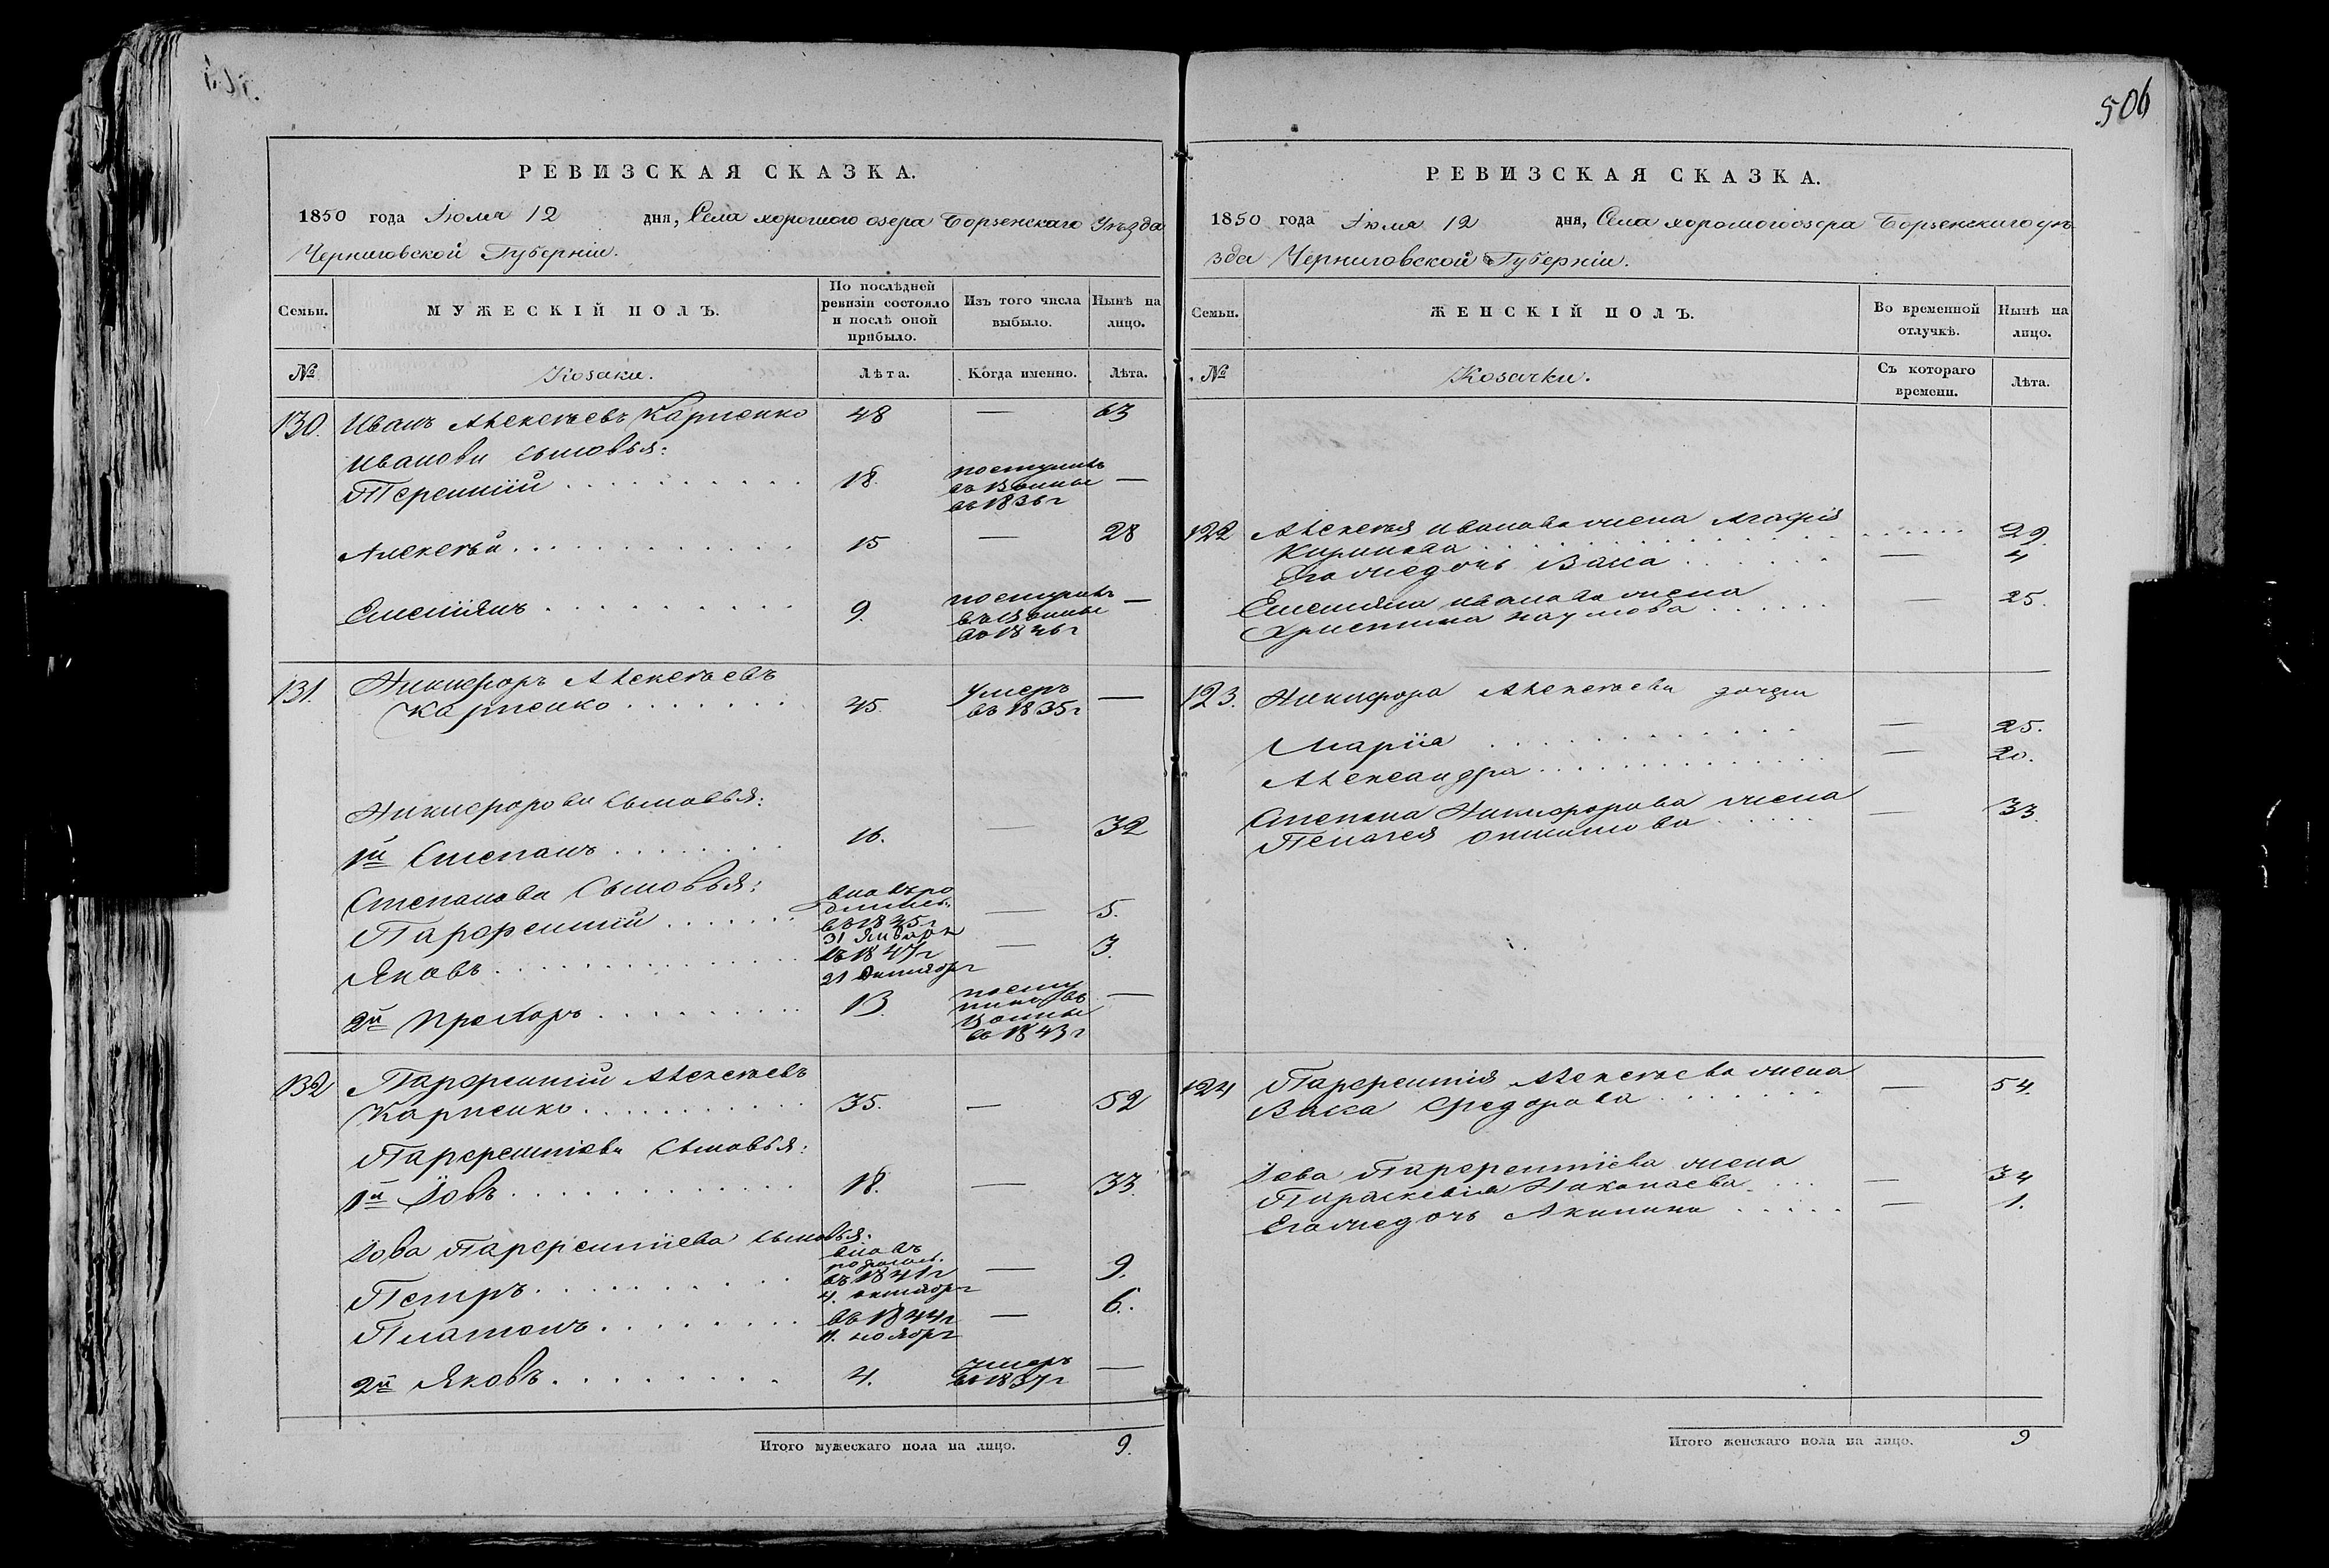 506
РЕВИЗСКАЯ СКАЗКА.
1850 года Іюля 12 дня, Села хорошого озера Борзенскаго Уѣзда
Черниговской Губерніи.
Семьи.
МУЖЕСКІЙ ПОЛЪ.
По послѣдней ревизіи состояло и послѣ оной прибыло.
Изъ того числа выбыло.
Нынѣ на лицо.
№
Козаки.
Лѣта.
Когда именно.
Лѣта.
130. Иванъ Алексѣевъ Карпенко 48 — 63
Иванови сыновья:
Терентій 18. поступилъ въ Воины въ 1836 г —
Алексѣй 15 — 28
Емеліянъ 9. поступилъ въ Воины въ 1846 г —
131. Никифоръ Алексѣевъ
Карпенко 45. умеръ въ 1835 г —
Никифорови сыновья:
1й Степанъ 16. — 32
Степанови Сыновья:
Парфентій вновь родились въ 1845 г 31 Января — 5.
Яковъ въ 1847 г 21 Октября — 3.
2й Прохоръ 13. поступилъ въ Воины въ 1843 г —
132 Парфентій Алексѣевъ
Карпенко 35. — 52
Парфентіеви Сыновья:
1й Іовъ 18. — 33.
Іова Парфентіева сыновья:
Петръ вновь родились. въ 1841 г 4. октября — 9.
Платонъ въ 1844 г 11. ноября — 6.
2й Яковъ 4. умеръ въ 1837 г —
Итого мужескаго пола на лицо. 9.
РЕВИЗСКАЯ СКАЗКА.
1850 года Іюля 12 дня, Села хорошого озера Борзенскаго уѣ
зда Черниговской Губерніи.
Семьи.
ЖЕНСКІЙ ПОЛЪ.
Во временной отлучкѣ.
Нынѣ на лицо.
№
Козачки.
Съ котораго времени.
Лѣта.
122 Алексѣя иванова жена Агафія
Кирилова 29.
Его же дочь Васса — 4
Емеліяна иванова жена
Христина наумова — 25.
123. Никифора Алексѣева дочери
Маріа — 25.
Александра — 20.
Степана Никифорова жена
Пелагея — 33.
124 Парфентія Алексѣева жена
Васса Федорова — 54.
Іова Парфентіева жена
Параскевія Николаева — 34
Его же дочь Акилина — 1.
Итого женскаго пола на лицо. 9